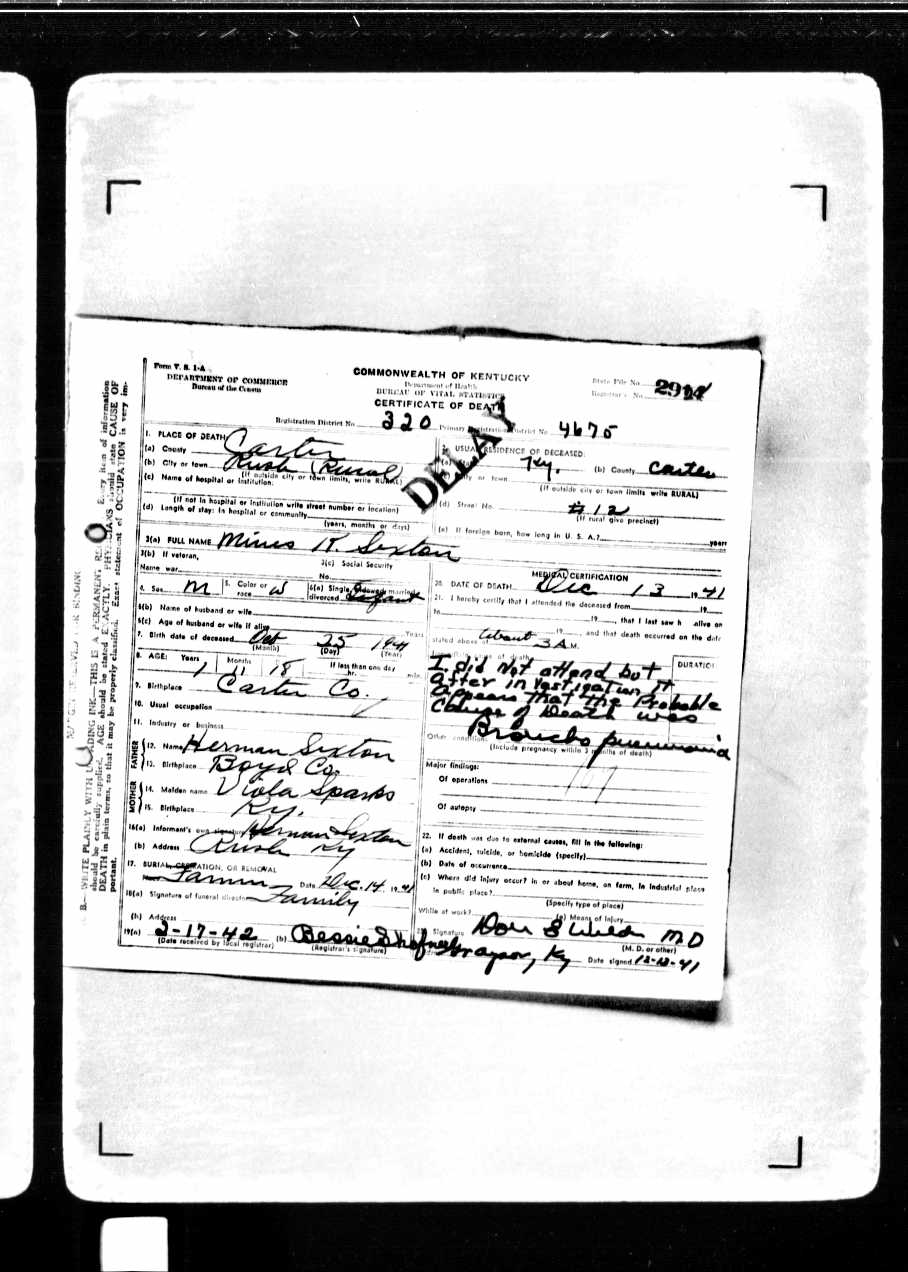 Form V. S. 1-A
DEPARTMENT OF COMMERCE
Bureau of the Census
COMMONWEALTH OF KENTUCKY
Department of Health
BUREAU OF VITAL STATISTICS
CERTIFICATE OF DEATH
State File No.
Registrar's No.
DELAY
Registration District No. 320 Primary Registration District No. 4675
1. PLACE OF DEATH
(a) County Carter
(b) City or town Rush (Rural)
(If outside city or town limits, write RURAL)
(c) Name of hospital or institution:
(If not in hospital or institution write street number or location)
(d) Length of stay: In hospital or community
(years, months or days)
USUAL RESIDENCE OF DECEASED:
Ky. (b) County Carter
(c) City or town
(If outside city or town limits write RURAL)
(d) Street No. #12
(If rural give precinct)
(e) If foreign born, how long in U. S. A.? years
3(a) FULL NAME R. Sexton
3(b) If veteran,
Name war
3(c) Social Security
No.
4. Sex M 5. Color or race W 6(a) Single, widowed, married, divorced Infant
6(b) Name of husband or wife
6(c) Age of husband or wife if alive Years
7. Birth date of deceased Oct 25 1941
(Month) (Day) (Year)
8. AGE: Years Months If less than one day
1 18 hr. min.
9. Birthplace Carter Co.
10. Usual occupation
11. Industry or business
FATHER
12. Name Herman Sexton
13. Birthplace Boyd Co.
MOTHER
14. Maiden name Viola Sparks
15. Birthplace Ky.
16(a) Informant's own signature Herman Sexton
(b) Address Rush Ky
17. BURIAL, CREMATION, OR REMOVAL
Date Dec. 14 1941
18(a) Signature of funeral director Family
(b) Address
19(a) 2-17-42 (b) Bessie
(Date received by local registrar) (Registrar's signature)
MEDICAL CERTIFICATION
20. DATE OF DEATH Dec 13 1941
21. I hereby certify that I attended the deceased from 19
to 19 , that I last saw h alive on
19 and that death occurred on the date
stated above at About 3 A M.
DURATION
I did Not attend but
After investigation it
Appears that the Probable
Cause of Death was
Broncho pneumonia
Other conditions
(Include pregnancy within 3 months of death)
Major findings:
Of operations
Of autopsy
22. If death was due to external causes, fill in the following:
(a) Accident, suicide, or homicide (specify)
(b) Date of occurrence
(c) Where did injury occur? in or about home, on farm, in industrial place
in public place?
(Specify type of place)
While at work? (e) Means of injury
Signature Don E Wilder MD
(M. D. or other)
Grayson, Ky Date signed
B.—WRITE PLAINLY WITH UNFADING INK—THIS IS A PERMANENT RECORD Every item of information
should be carefully supplied. AGE should be stated EXACTLY. PHYSICIANS should state CAUSE OF
DEATH in plain terms, so that it may be properly classified. Exact statement of OCCUPATION is very im-
portant.